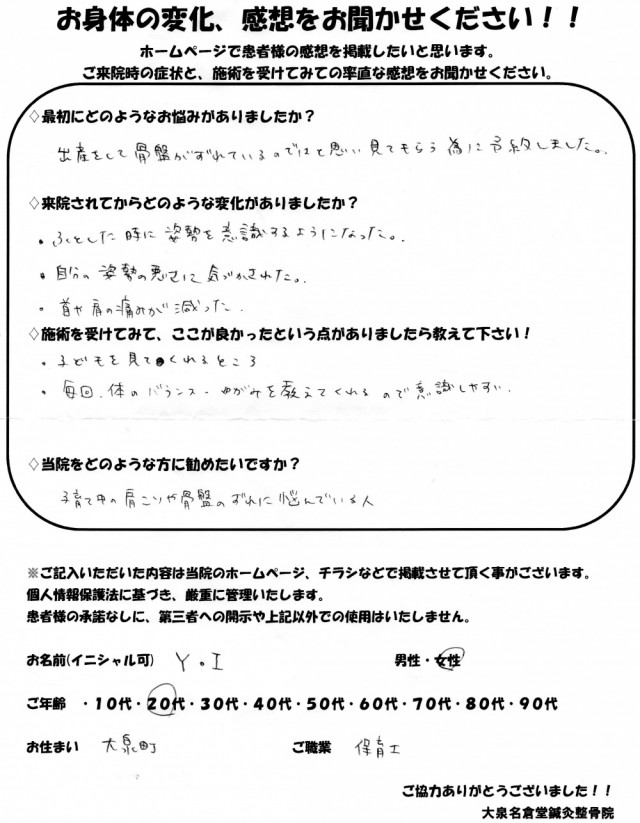 お身体の変化、感想をお聞かせください！！
ホームページで患者様の感想を掲載したいと思います。
ご来院時の症状と、施術を受けてみての率直な感想をお聞かせください。
◇最初にどのようなお悩みがありましたか？
出産をして骨盤がずれているのではと思い見てもらう為に予約しました。
◇来院されてからどのような変化がありましたか？
・ふとした時に姿勢を意識するようになった。
・自分の姿勢の悪さに気づかされた。
・首や肩の痛みが減った。
◇施術を受けてみて、ここが良かったという点がありましたら教えて下さい！
・子どもを見てくれるところ
・毎回、体のバランス・ゆがみを教えてくれるので意識しやすい。
◇当院をどのような方に勧めたいですか？
子育て中の肩こりや骨盤のずれに悩んでいる人
※ご記入いただいた内容は当院のホームページ、チラシなどで掲載させて頂く事がございます。
個人情報保護法に基づき、厳重に管理いたします。
患者様の承諾なしに、第三者への開示や上記以外での使用はいたしません。
お名前(イニシャル可) Y.I 男性・女性
ご年齢 ・10代・20代・30代・40代・50代・60代・70代・80代・90代
お住まい 大泉町 ご職業 保育士
ご協力ありがとうございました！！
大泉名倉堂鍼灸整骨院